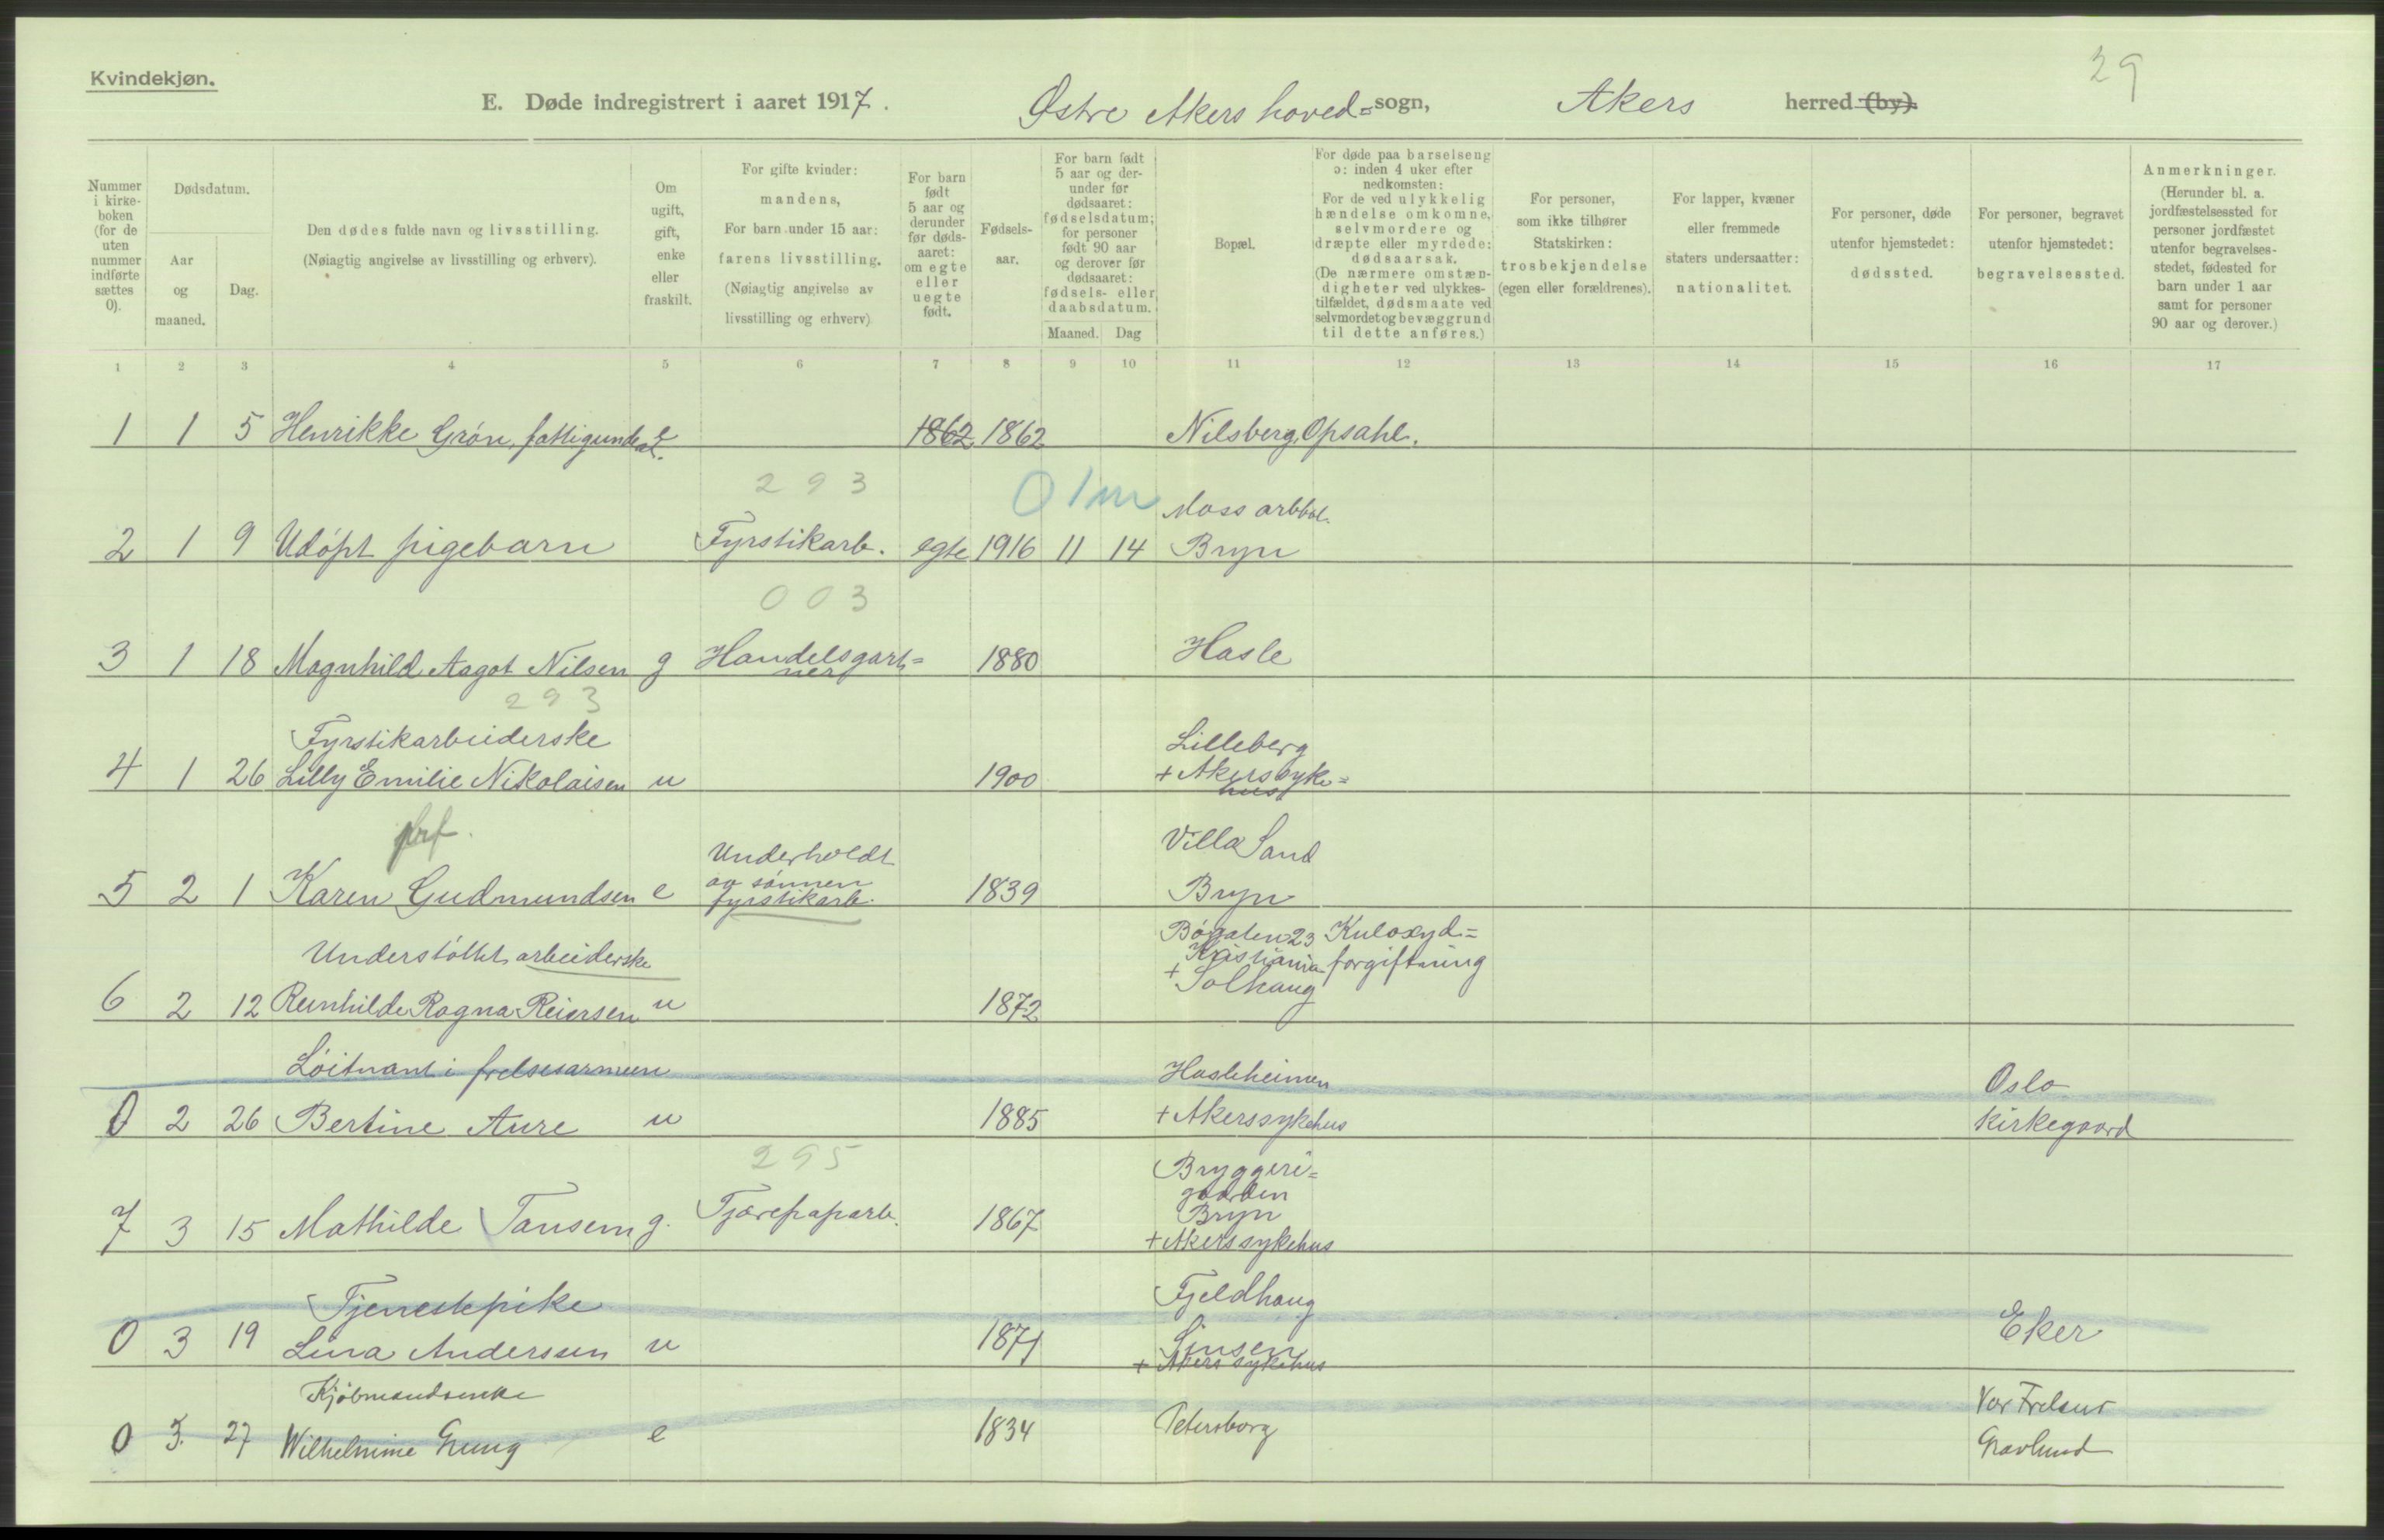 29
Kvindekjøn.
E. Døde indregistrert i aaret 1917. Østre Akers hoved= sogn, Akers herred (by).
Nummer i kirke-boken (for de uten nummer indførte sættes 0).
Dødsdatum.
Aar og maaned.
Dag.
Den dødes fulde navn og livsstilling.
(Nøiagtig angivelse av livsstilling og erhverv).
Om ugift, gift, enke eller fraskilt.
For gifte kvinder: mandens,
For barn under 15 aar: farens livsstilling.
(Nøiagtig angivelse av livsstilling og erhverv)
For barn født 5 aar og derunder før døds-aaret: om egte eller uegte født.
Fødsels-aar.
For barn født 5 aar og der-under før dødsaaret: fødselsdatum; for personer født 90 aar og derover før dødsaaret: fødsels- eller daabsdatum.
Maaned. Dag
Bopæl.
For døde paa barselseng ɔ: inden 4 uker efter nedkomsten:
For de ved ulykkelig hændelse omkomne, selvmordere og dræpte eller myrdede: dødsaarsak.
(De nærmere omstæn-digheter ved ulykkes-tilfældet, dødsmaate ved selvmordet og bevæggrund til dette anføres.)
For personer, som ikke tilhører Statskirken: trosbekjendelse (egen eller forældrenes).
For lapper, kvæner eller fremmede staters undersaatter: nationalitet.
For personer, døde utenfor hjemstedet: dødssted.
For personer, begravet utenfor hjemstedet: begravelsessted.
Anmerkninger.
(Herunder bl. a. jordfæstelsessted for personer jordfæstet utenfor begravelses-stedet, fødested for barn under 1 aar samt for personer 90 aar og derover.)
1 2 3 4 5 6 7 8 9 10 11 12 13 14 15 16 17
1 1 5 Henrikke Grøn, fattigunde e 1862 1862 Nilsberg, Opsahl.
293 0 1m Moss arbbol.
2 1 9 Udøpt pigebarn Fyrstikarb. egte 1916 11 14 Bryn
003
3 1 18 Magnhild Aagot Nilsen g Handelsgart= 1880 Hasle
ner
293
Fyrstikarbeiderske Lilleberg
4 1 26 Lilly Emilie Nikolaisen u 1900 + Akers syke=
hus
Underholdt Villa Sand
av sønnen
5 2 1 Karen Gudmundsen e fyrstikarb. 1839 Bryn
Understøttet arbeiderske Bøgaten 23 Kuloxyd=
Kristiania forgiftning
+ Solhaug
6 2 12 Reinhilde Ragna Reiersen u 1872
Løitnant i frelsesarmeen Hasleheimen Oslo
0 2 26 Bertine Aure u 1885 + Akerssykehus Kirkegaard
295 Bryggeri=
gaarden
7 3 15 Mathilde Tansem g. Tjærepaparb. 1867 Bryn
+ Akerssykehus
Tjenestepike Fjeldhaug
0 3 19 Lina Anderssen u 1871 Sinsen Eker
+ Akers sykehus
Kjøbmandsenke Vor Frelsers
0 3. 27 Wilhelmine Grung e 1834 Petersborg Gravlund